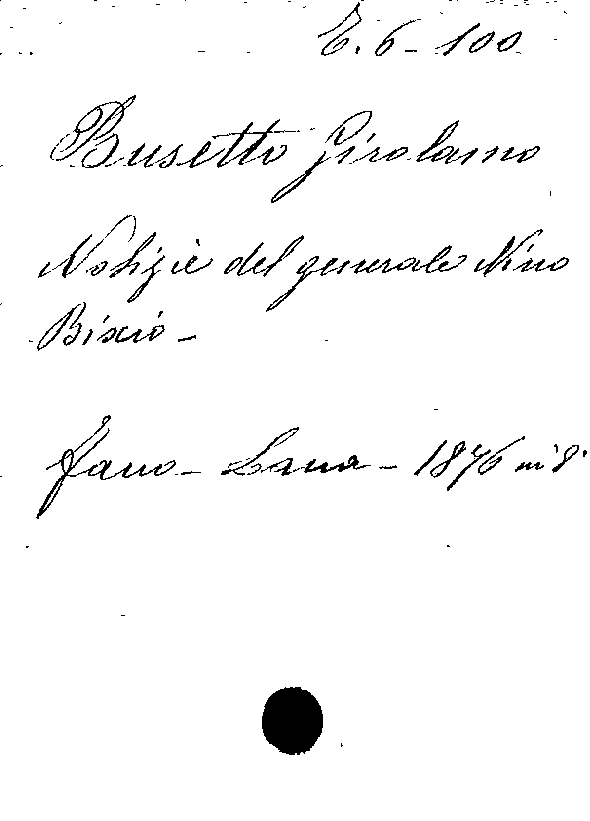 E. 6 - 100
Busetto Girolamo
Notizie del generale Nino
Bixio -
Fano - Lana - 1876 in 8°